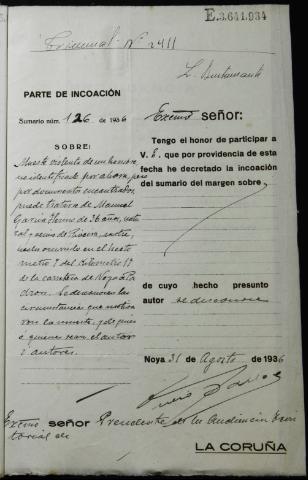 E.3.641.934
Criminal - Nº 2411
L. Bustamante
PARTE DE INCOACIÓN
Sumario núm. 126 de 1936
SOBRE:
Muerte violenta de un hombre
no identificado por ahora, pero
por documentos encontrados,
puede tratarse de Manuel
García de 36 años, natu
ral y vecino de Riveira,
hecho ocurrido en el hecto
metro 8 del kilometro 19
de la carretera de Noya a Pa
drón. Se desconocen las
circunstancias que motiva
ron la muerte, y de quien
ó quienes sean el autor
o autores.
Excmo señor:
Tengo el honor de participar a
V. E. que por providencia de esta
fecha he decretado la incoación
del sumario del margen sobre
de cuyo hecho presunto
autor se desconoce
Noya 31 de Agosto de 1936
Excmo señor Presidente de la Audiencia Terri
torial de
LA CORUÑA